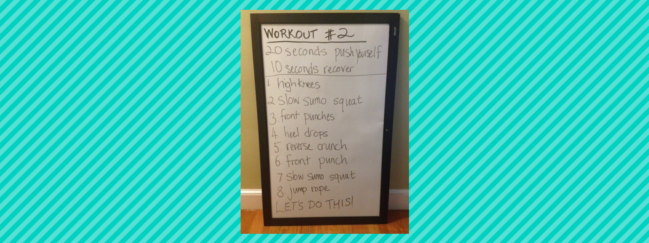 WORKOUT #2
20 seconds push yourself
10 seconds recover
1 high knees
2 slow sumo squat
3 front punches
4 heel drops
5 reverse crunch
6 front punch
7 slow sumo squat
8 jump rope
LETS DO THIS!